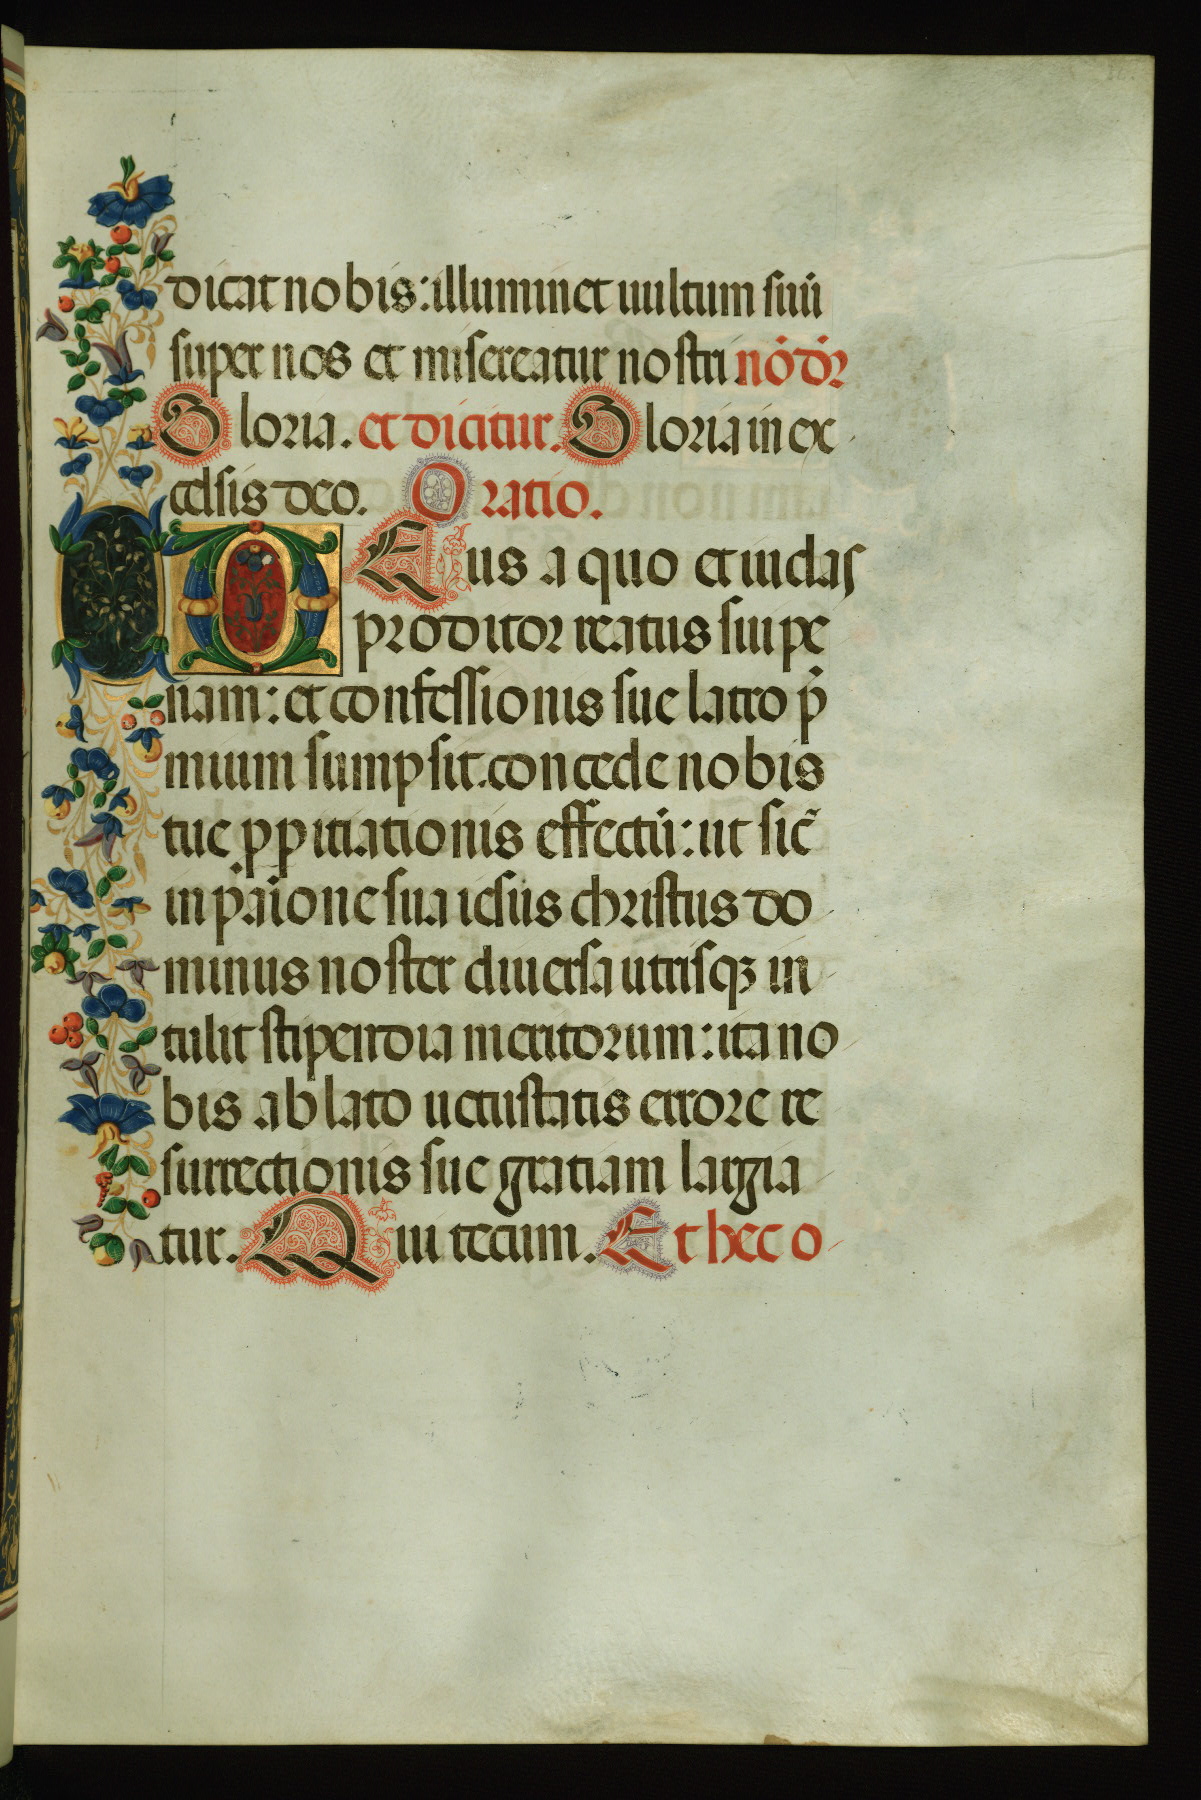 dicat nobis: illuminet uultum suū
super nos et misereatur nostri nō dr̄
Gloria. et dicitur. Gloria in ex
celsis deo. Oratio.
DEus a quo et iudas
proditor reatus sui pe
nam: et confessionis sue latro p̄
mium sumpsit. concede nobis
tue ꝓpitiationis effectū: ut sic̄
in paīone sua iesus christus do
minus noster diuersa utrisqꝫ in
tulit stipendia meritorum: ita no
bis ablato uetustatis errore re
surrectionis sue gratiam largia
tur. Qui tecum. Et hec o